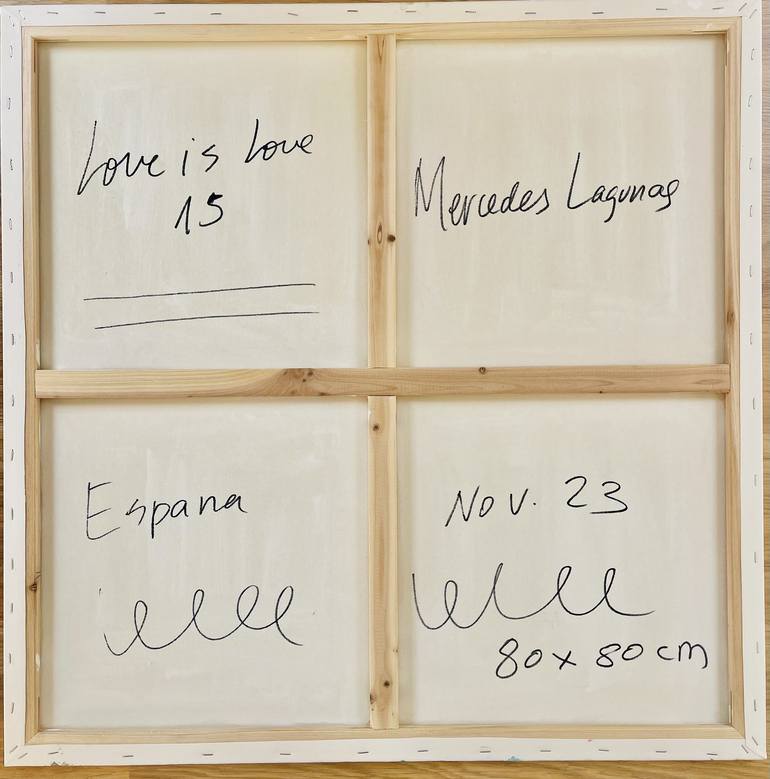 Love is Love
15
Mercedes Lagunas
Espana
Nov. 23
80 x 80 cm